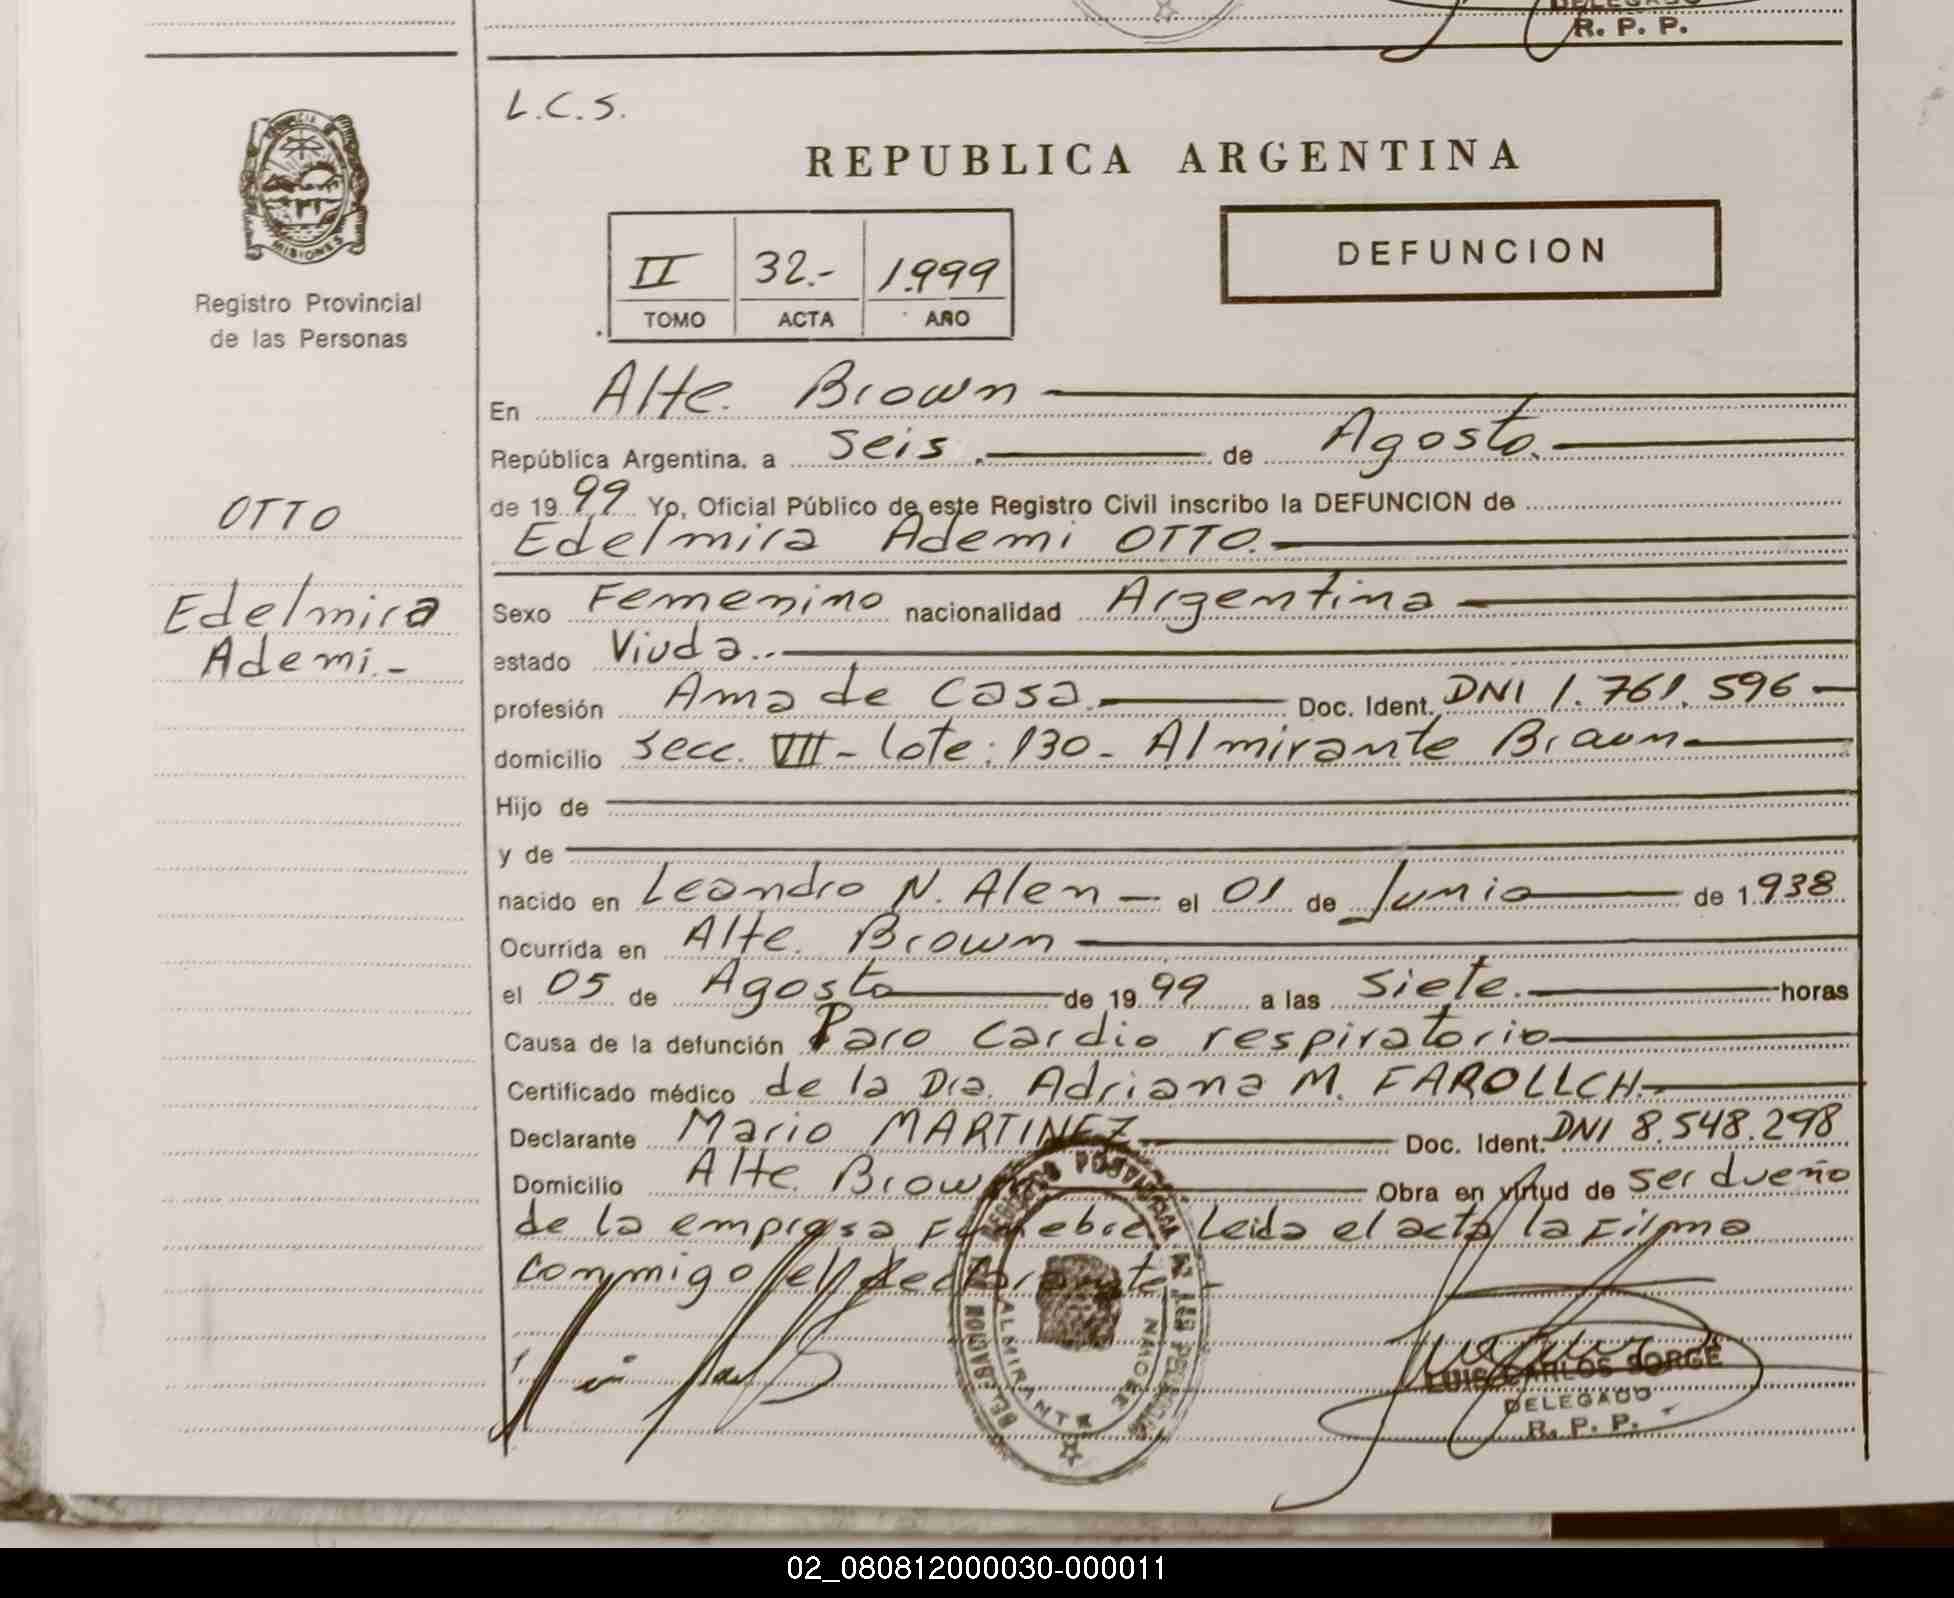 DELEGADO
R. P. P.
L.C.S.
REPUBLICA ARGENTINA
PROVINCIA DE
MISIONES
Registro Provincial
de las Personas
II 32.- 1.999
TOMO ACTA AÑO
DEFUNCION
En Alte. Brown
República Argentina, a seis. de Agosto.
de 19 99 Yo, Oficial Público de este Registro Civil inscribo la DEFUNCION de
Edelmira Ademi OTTO.
OTTO
Edelmira
Ademi.-
Sexo Femenino nacionalidad Argentina
estado Viuda..
profesión Ama de Casa. Doc. Ident. DNI 1.761.596
domicilio secc. VII - lote: 130 - Almirante Brown
Hijo de
y de
nacido en Leandro N. Alen - el 01 de Junio de 1938
Ocurrida en Alte. Brown
el 05 de Agosto de 19 99 a las siete. horas
Causa de la defunción Paro Cardio respiratorio
Certificado médico de la Dra. Adriana M. FAROLLCH.-
Declarante Mario MARTINEZ Doc. Ident. DNI 8.548.298
Domicilio Alte. Brown Obra en virtud de ser dueño
de la empresa Funebre. Leida el acta la Filma
conmigo el declarante.-
REGISTRO PROVINCIAL DE LAS PERSONAS
DELEGACION
ALMIRANTE BROWN
LUIS CARLOS SORGE
DELEGADO
R. P. P.
02_080812000030-000011